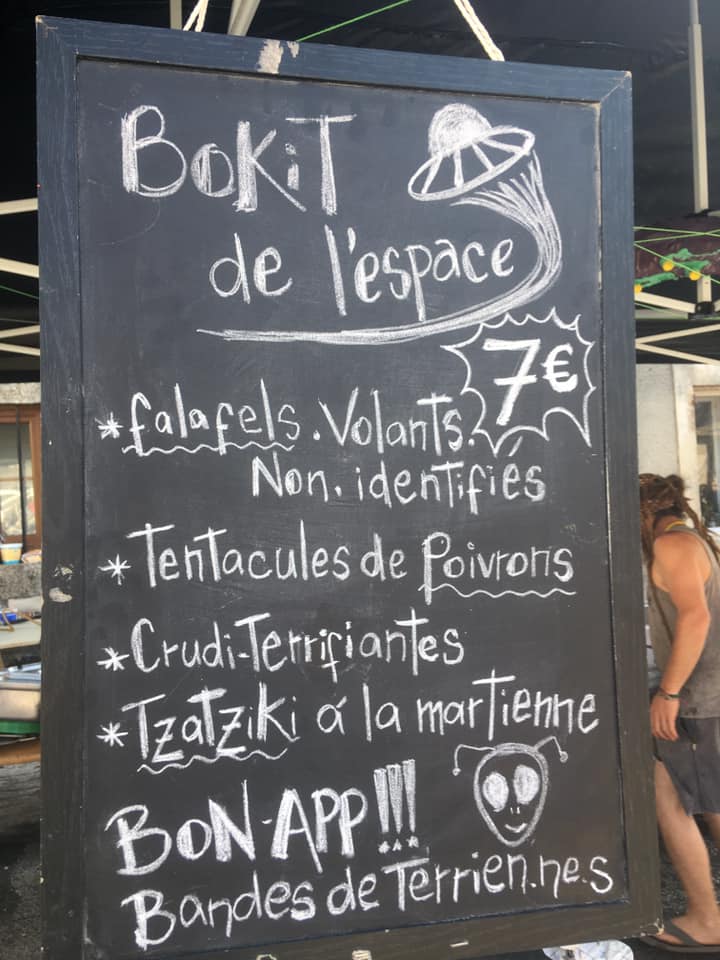 BoKiT
de l'espace
7€
*falafels.Volants.
Non.identifiés
*Tentacules de Poivrons
*Crudi-Terrifiantes
*Tzatziki á la martienne
BoN-APP!!!
Bandes de Terrien.ne.s